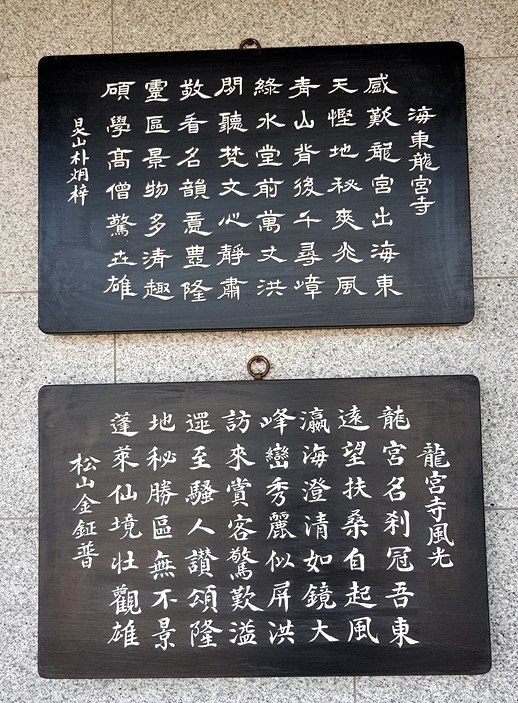 海東龍宮寺
感歎龍宮出海東
天慳地秘爽兆風
青山背後千尋嶂
綠水堂前萬丈洪
閑聽梵文心靜肅
敬看名韻意豊隆
靈區景物多清趣
碩學高僧驚世雄
山朴炯梓
龍宮寺風光
龍宮名刹冠吾東
遠望扶桑自起風
瀛海澄清如鏡大
峰巒秀麗似屏洪
訪來賞客驚歎溢
還至騷人讚頌隆
地秘勝區無不景
蓬萊仙境壮觀雄
松山金鉦普